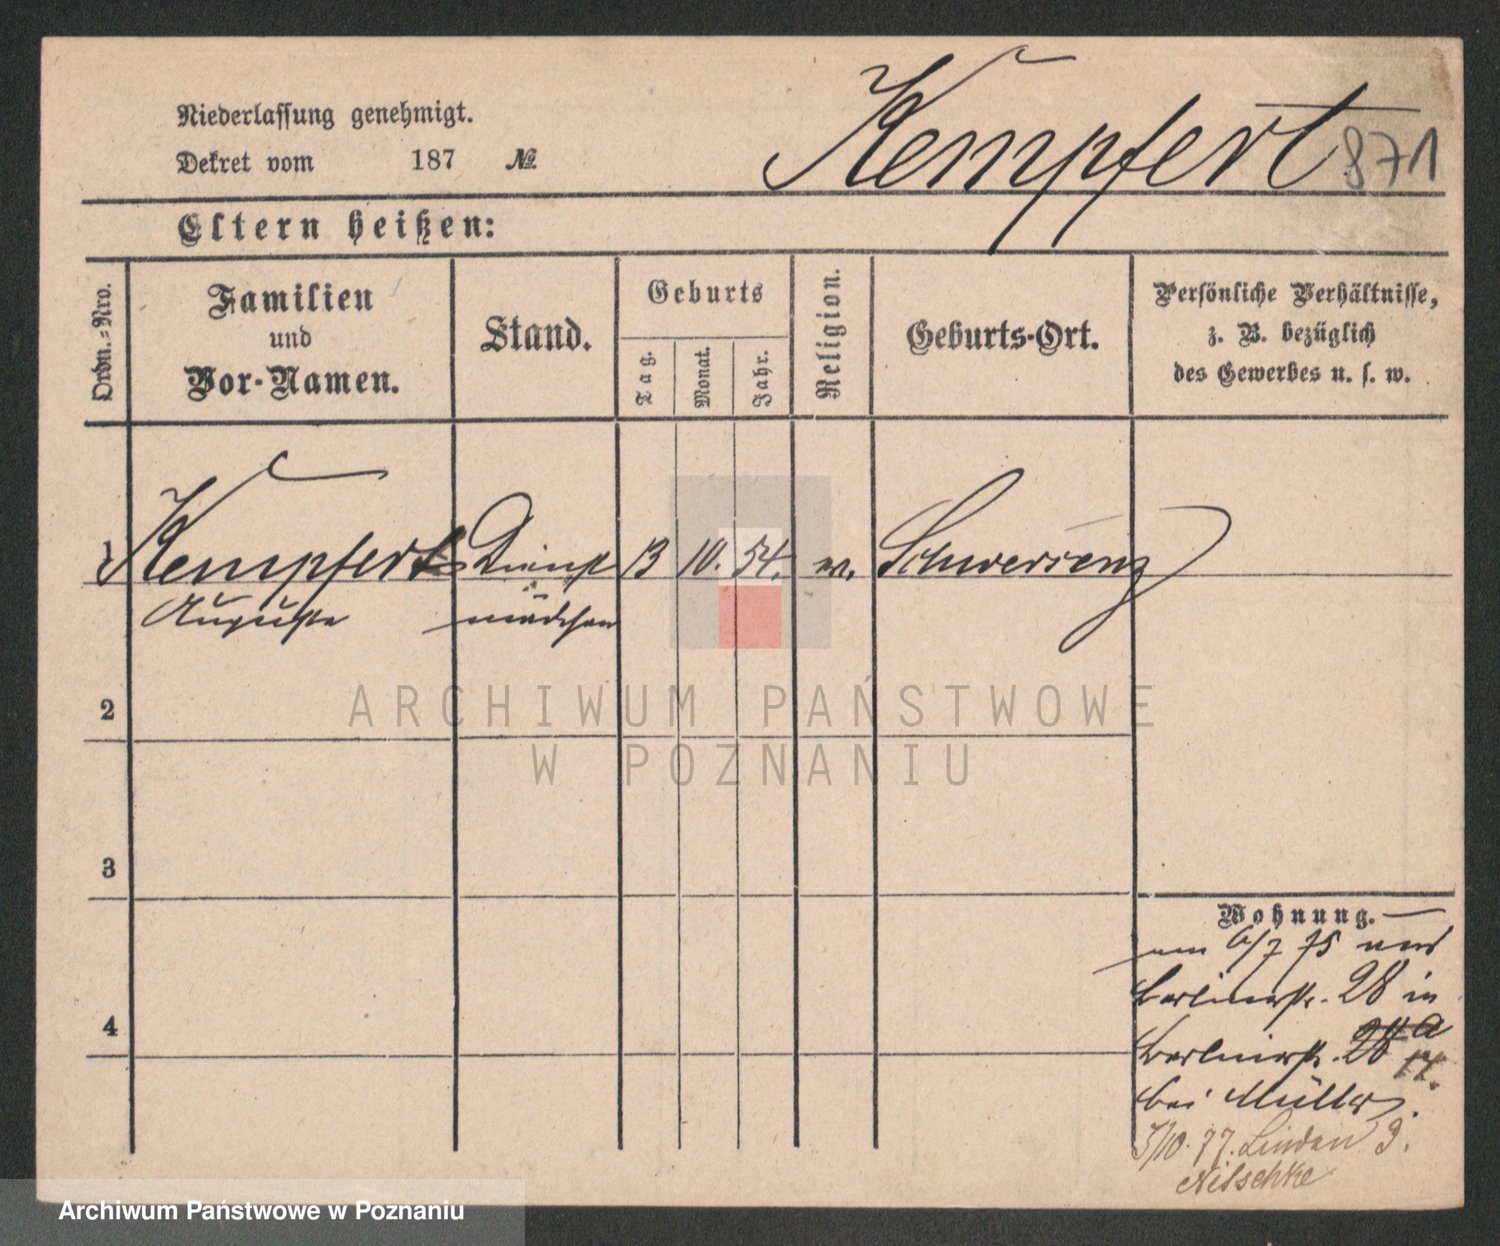 Niederlassung genehmigt.
Dekret vom 187 №
Kempfert 871
Eltern heißen:
Ordn.-Nro.
Familien
und
Vor-Namen.
Stand.
Geburts
Tag.
Monat.
Jahr.
Religion.
Geburts-Ort.
Persönliche Verhältnisse,
z. B. bezüglich
des Gewerbes u. s. w.
1 Kempfert Dienst 13 10. 54. Schwersenz
Auguste mädchen
2
ARCHIWUM PAŃSTWOWE
W POZNANIU
3
Wohnung.
6/7 75
Berlinerstr. 28 in
4
Berlinerstr.
bei Müller.
3/10. 77. Linden 9.
Nitschke
Archiwum Państwowe w Poznaniu